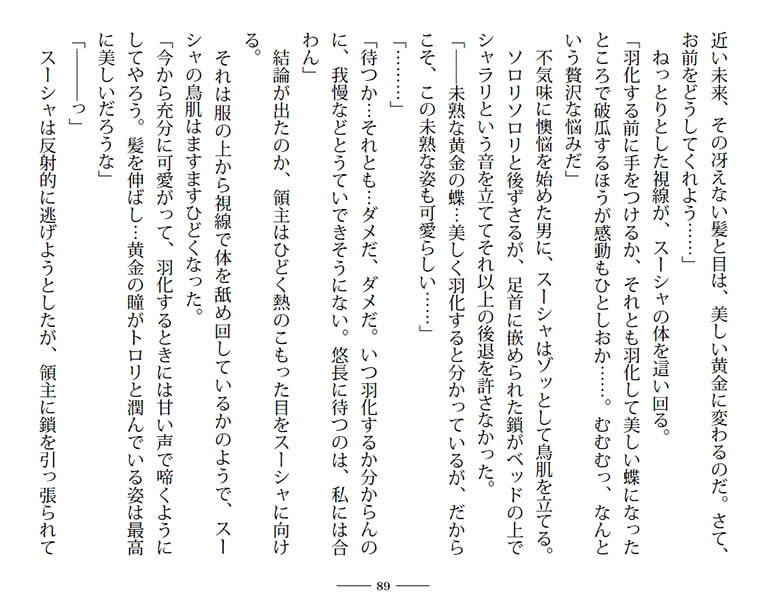 近い未来、その冴えない髪と目は、美しい黄金に変わるのだ。さて、
お前をどうしてくれよう……」
　ねっとりとした視線が、スーシャの体を這い回る。
「羽化する前に手をつけるか、それとも羽化して美しい蝶になった
ところで破瓜するほうが感動もひとしおか……。むむむっ、なんと
いう贅沢な悩みだ」
　不気味に懊悩を始めた男に、スーシャはゾッとして鳥肌を立てる。
　ソロリソロリと後ずさるが、足首に嵌められた鎖がベッドの上で
シャラリという音を立ててそれ以上の後退を許さなかった。
「――未熟な黄金の蝶…美しく羽化すると分かっているが、だから
こそ、この未熟な姿も可愛らしい……」
「………」
「待つか…それとも…ダメだ、ダメだ。いつ羽化するか分からんの
に、我慢などとうていできそうにない。悠長に待つのは、私には合
わん」
　結論が出たのか、領主はひどく熱のこもった目をスーシャに向け
る。
　それは服の上から視線で体を舐め回しているかのようで、スー
シャの鳥肌はますますひどくなった。
「今から充分に可愛がって、羽化するときには甘い声で啼くように
してやろう。髪を伸ばし…黄金の瞳がトロリと潤んでいる姿は最高
に美しいだろうな」
「―――っ」
　スーシャは反射的に逃げようとしたが、領主に鎖を引っ張られて
89